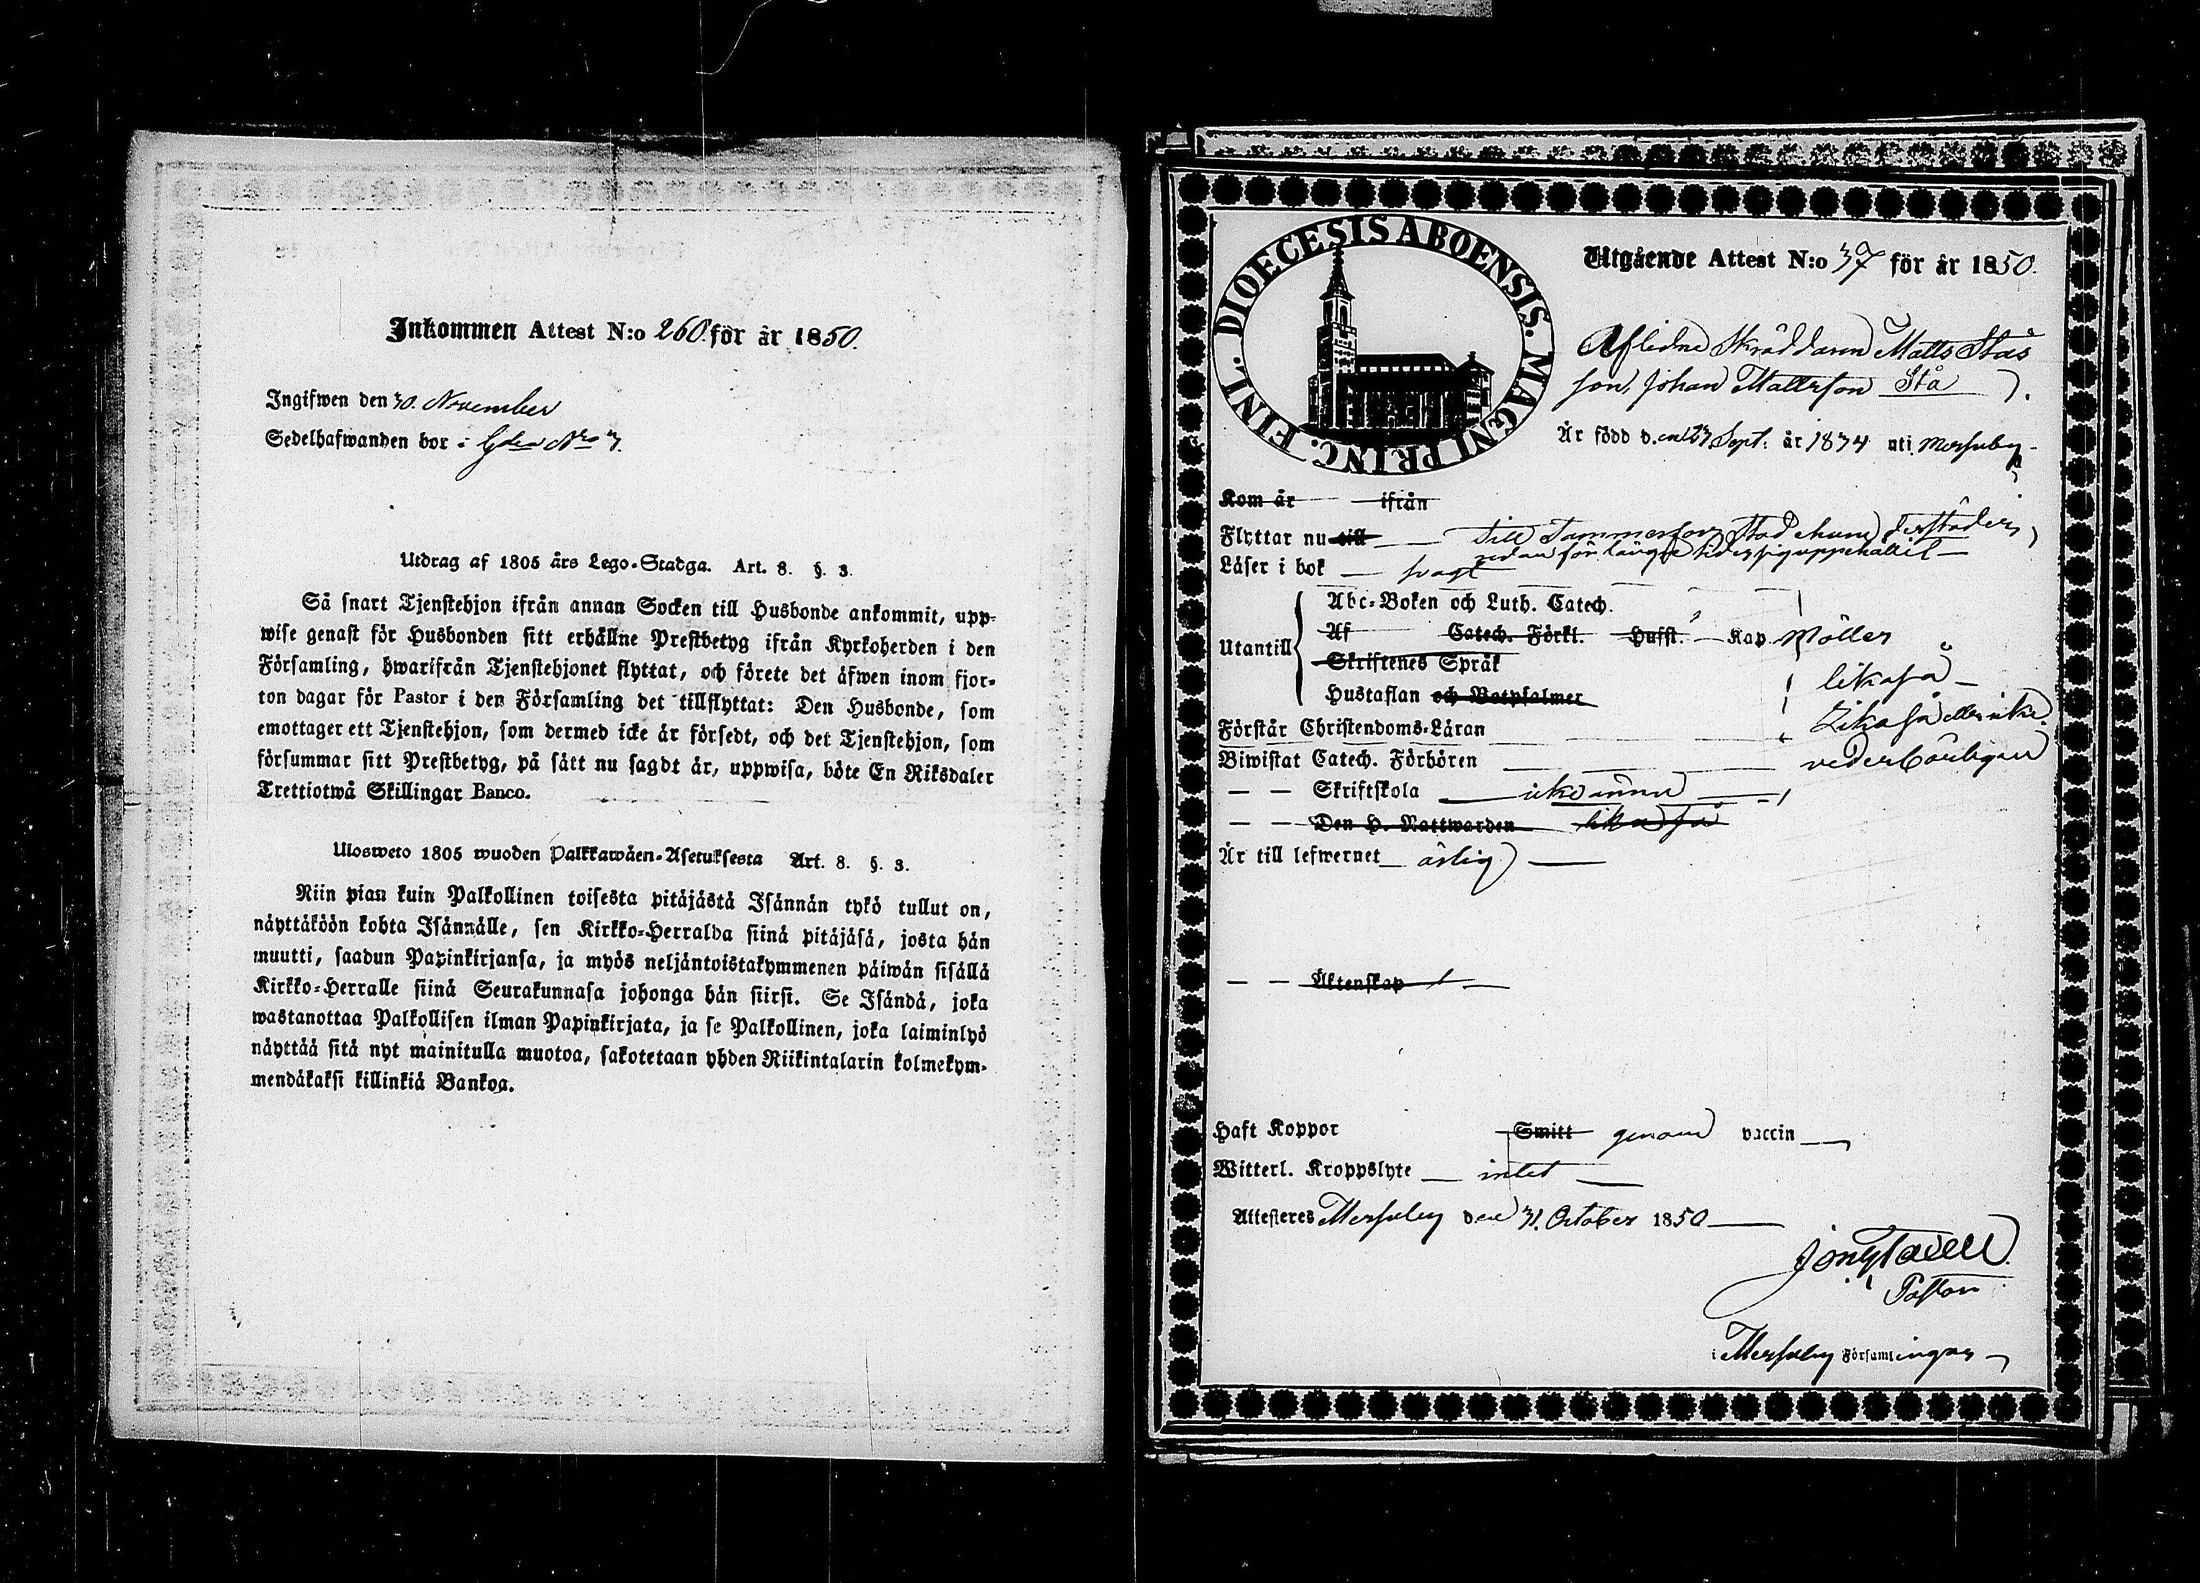 Inkommen Attest N:o 260. för år 1850.
Ingifwen den 30. November
Sedelhafwanden bor i Gden Nro 7.
Utdrag af 1805 års Lego-Stadga. Art. 8. §. 3.
Så snart Tjenstehjon ifrån annan Socken till Husbonde ankommit, upp-
wise genast för Husbonden sitt erhållne Prestbetyg ifrån Kyrkoherden i den
Församling, hwarifrån Tjenstehjonet flyttat, och förete det äfwen inom fjor-
ton dagar för Pastor i den Församling det tillflyttat: Den Husbonde, som
emottager ett Tjenstehjon, som dermed icke är försedt, och det Tjenstehjon, som
försummar sitt Prestbetyg, på sätt nu sagdt är, uppwisa, böte En Riksdaler
Trettiotwå Skillingar Banco.
Ulosweto 1805 wuoden Palkkawäen-Asetuksesta Art. 8. §. 3.
Niin pian kuin Palkollinen toisesta pitäjästä Isännän tykö tullut on,
näyttäköön kohta Isännälle, sen Kirkko-Herralda siinä pitäjäsä, josta hän
muutti, saadun Papinkirjansa, ja myös neljäntoistakymmenen päiwän sisällä
Kirkko-Herralle siinä Seurakunnasa johonga hän siirsi. Se Isändä, joka
wastanottaa Palkollisen ilman Papinkirjata, ja se Palkollinen, joka laiminlyö
näyttää sitä nyt mainitulla muotoa, sakotetaan yhden Riikintalarin kolmekym-
mendäkaksi killinkiä Bankoa.
DIOECESIS ABOENSIS. MAGNI PRINC. FINL.
Utgående Attest N:o 37 för år 1850.
Aflidne Skräddaren Matts Stås
son, Johan Mattsson Stå
Är född den 23 Sept: år 1834 uti Mersuby
Kom år ifrån
Flyttar nu till till Tammerfors Stad ehum derstädes
redan för längre tider sig uppehållit
Läser i bok svagt
Utantill
Abc-Boken och Luth. Catech.
Af Catech. Förkl. Husst. Kap
Skriftenes Språk
Hustaflan och Botpsalmer likaså
Förstår Christendoms-Läran Likaså eller icke
Biwistat Catech. Förhören vederbörligen
— — Skriftskola icke ännu
— — Den H. Nattwarden likaså
Är till lefwernet ärlig
— — Äktenskap
Haft Koppor Smitt genom vaccin
Witterl. Kroppslyte intet
Attesteres Mersuby den 31. October 1850
Pastor
i Mersuby Församlingar